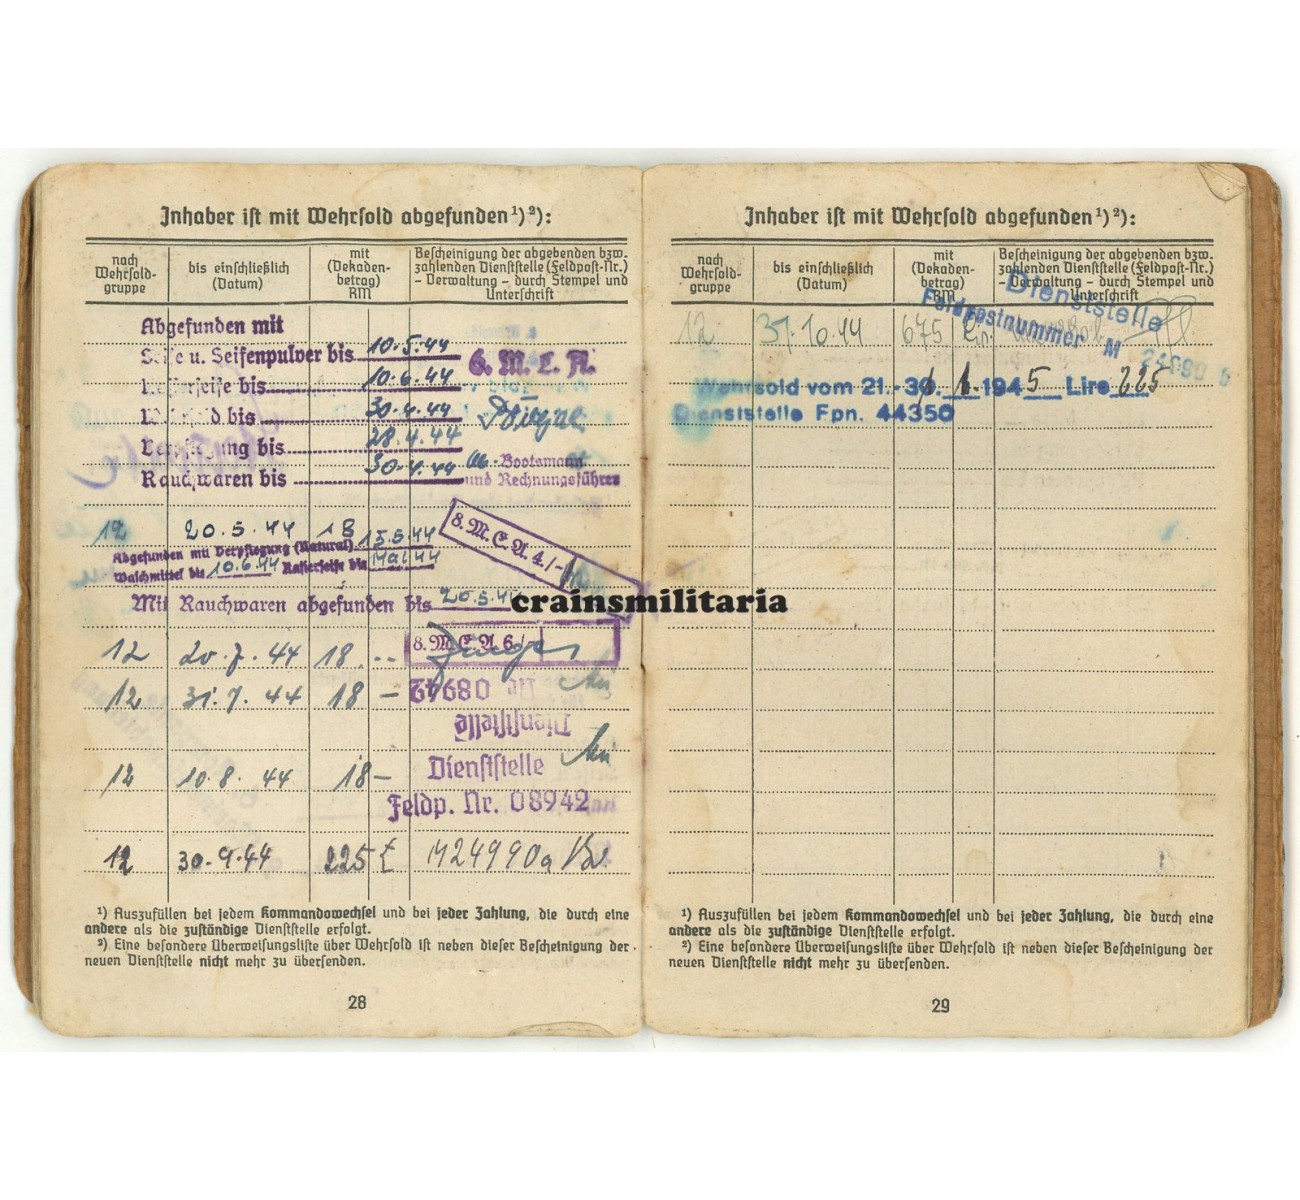 Inhaber ist mit Wehrsold abgefunden¹)²):
nach Wehrsold-gruppe
bis einschließlich (Datum)
mit (Dekaden-betrag) RM
Bescheinigung der abgebenden bzw. zahlenden Dienststelle (Feldpost-Nr.) - Verwaltung - durch Stempel und Unterschrift
Abgefunden mit
Seife u. Seifenpulver bis 10.5.44
Rasierseife bis 10.6.44
bis 30.4.44
Verpflegung bis 28.4.44
Rauchwaren bis 30.4.44
6. M. E. A.
Bootsmann
und Rechnungsführer
12 20.5.44 18
Abgefunden mit Verpflegung (Natural) 15.5.44
Waschmittel bis 10.6.44 Rasierseife bis Mai 44
8. M. E. A. 4./-
Mit Rauchwaren abgefunden bis 20.5.44
crainsmilitaria
12 20.7.44 18 --
8. M. E. A. 6./-
12 31.7.44 18 -
Nr. 08942
Dienststelle
12 10.8.44 18 -
Dienststelle
Feldp. Nr. 08942
12 30.9.44 225 £ M24990a
¹) Auszufüllen bei jedem Kommandowechsel und bei jeder Zahlung, die durch eine
andere als die zuständige Dienststelle erfolgt.
²) Eine besondere Überweisungsliste über Wehrsold ist neben dieser Bescheinigung der
neuen Dienststelle nicht mehr zu übersenden.
28
Inhaber ist mit Wehrsold abgefunden¹)²):
nach Wehrsold-gruppe
bis einschließlich (Datum)
mit (Dekaden-betrag) RM
Bescheinigung der abgebenden bzw. zahlenden Dienststelle (Feldpost-Nr.) - Verwaltung - durch Stempel und Unterschrift
Dienststelle
Feldpostnummer M
12 31.10.44 675
Wehrsold vom 21.-3 1. 1945 Lire 225
Dienststelle Fpn. 44350
¹) Auszufüllen bei jedem Kommandowechsel und bei jeder Zahlung, die durch eine
andere als die zuständige Dienststelle erfolgt.
²) Eine besondere Überweisungsliste über Wehrsold ist neben dieser Bescheinigung der
neuen Dienststelle nicht mehr zu übersenden.
29